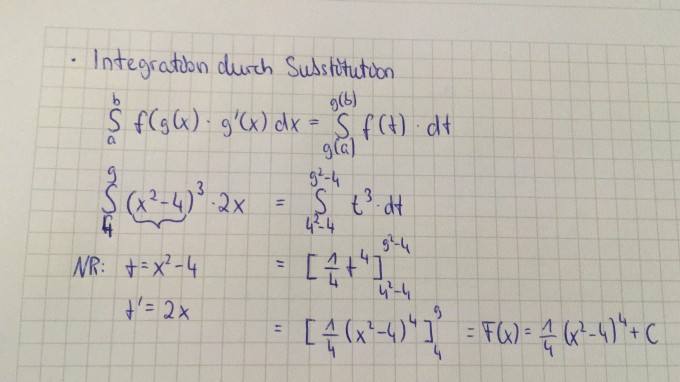 · Integration durch Substitution
∫_a^b f(g(x) · g'(x) dx = ∫_{g(a)}^{g(b)} f(t) · dt
∫_4^9 (x²-4)³ · 2x = ∫_{4²-4}^{9²-4} t³ · dt
NR: t = x²-4 = [1/4 t⁴]_{4²-4}^{9²-4}
t' = 2x
= [1/4 (x²-4)⁴]_4^9 = F(x) = 1/4 (x²-4)⁴ + C